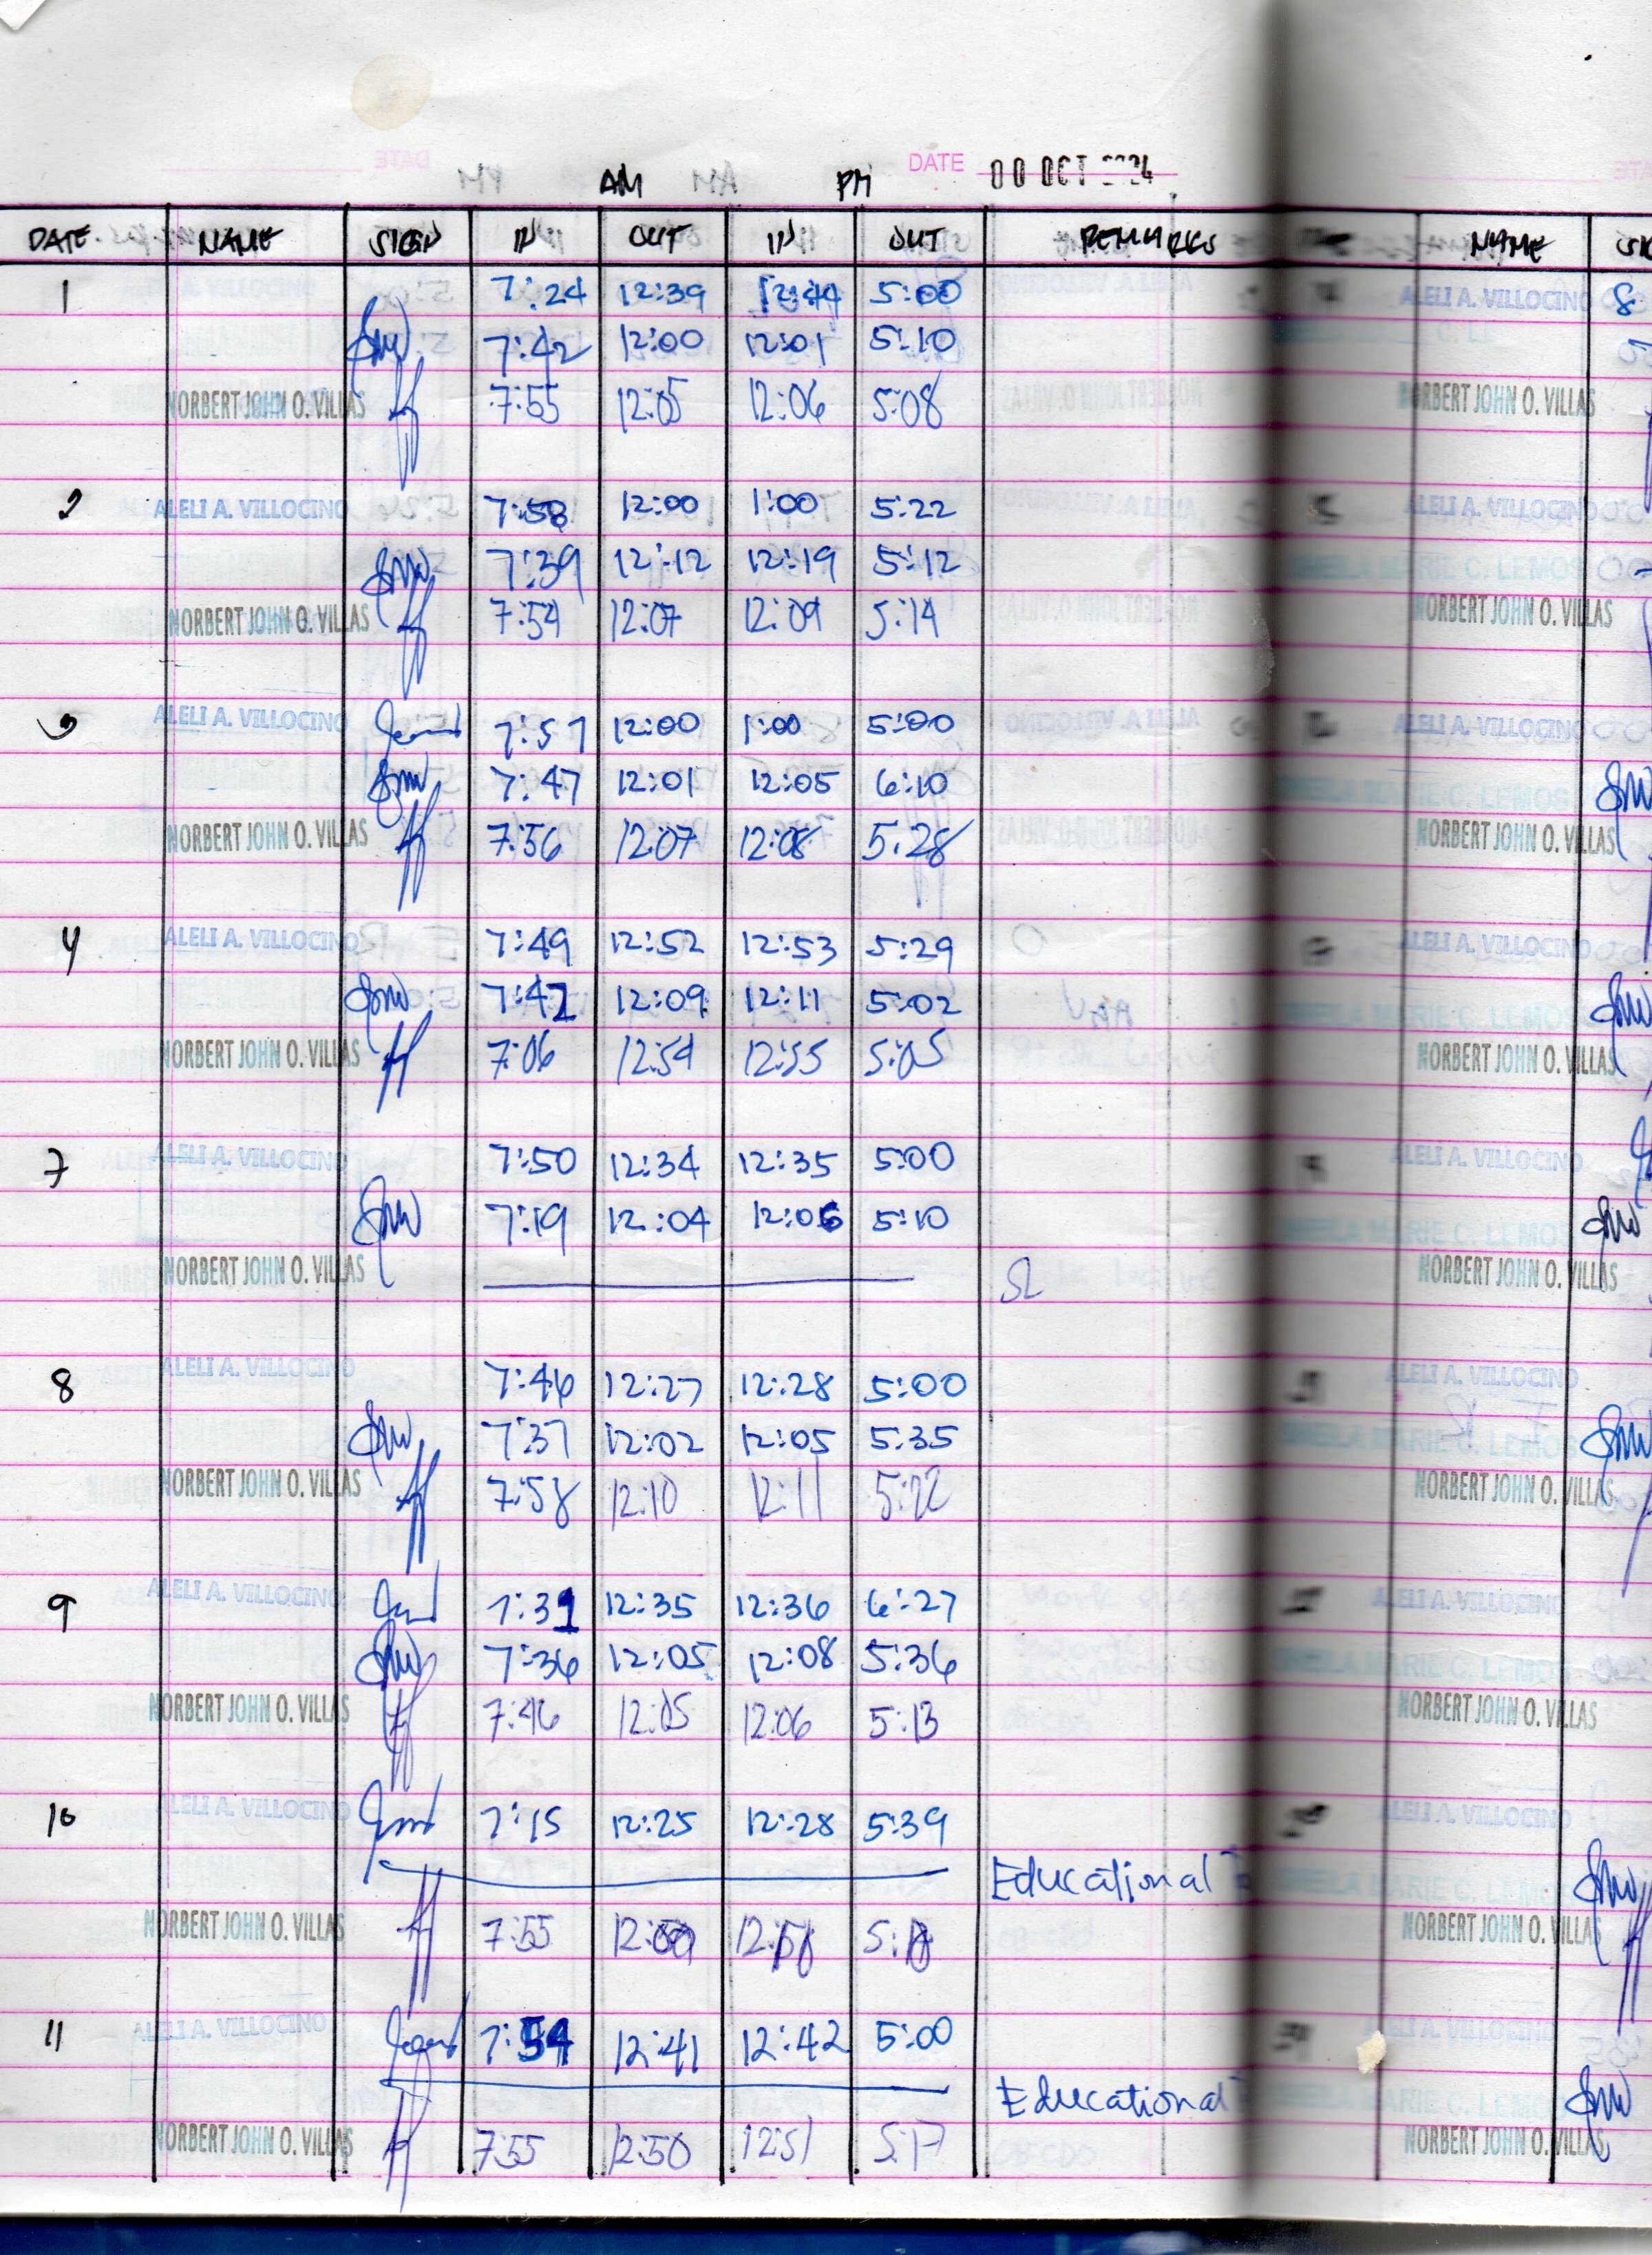 DATE 00 OCT 24
AM PM
DATE NAME SIGN IN OUT IN OUT REMARKS NAME
1 7:24 12:39 12:44 5:00 ALELI A. VILLOCINO 8
7:42 12:00 12:01 5:10
NORBERT JOHN O. VILLAS 7:55 12:05 12:06 5:08 NORBERT JOHN O. VILLAS
2 ALELI A. VILLOCINO 7:58 12:00 1:00 5:22 ALELI A. VILLOCINO
7:39 12:12 12:19 5:12 SHEILA MARIE C. LEMOS
NORBERT JOHN O. VILLAS 7:54 12:07 12:09 5:14 NORBERT JOHN O. VILLAS
3 ALELI A. VILLOCINO 7:57 12:00 1:00 5:00 ALELI A. VILLOCINO
7:47 12:01 12:05 6:10 SHEILA MARIE C. LEMOS
NORBERT JOHN O. VILLAS 7:56 12:07 12:08 5:28 NORBERT JOHN O. VILLAS
4 ALELI A. VILLOCINO 7:49 12:52 12:53 5:29 ALELI A. VILLOCINO
7:42 12:09 12:11 5:02 SHEILA MARIE C. LEMOS
NORBERT JOHN O. VILLAS 7:06 12:54 12:55 5:05 NORBERT JOHN O. VILLAS
7 ALELI A. VILLOCINO 7:50 12:34 12:35 5:00 ALELI A. VILLOCINO
7:19 12:04 12:06 5:10 SHEILA MARIE C. LEMOS
NORBERT JOHN O. VILLAS SL NORBERT JOHN O. VILLAS
8 ALELI A. VILLOCINO 7:46 12:27 12:28 5:00 ALELI A. VILLOCINO
7:37 12:02 12:05 5:35 SHEILA MARIE C. LEMOS
NORBERT JOHN O. VILLAS 7:58 12:10 12:11 5:22 NORBERT JOHN O. VILLAS
9 ALELI A. VILLOCINO 7:31 12:35 12:36 6:27 ALELI A. VILLOCINO
7:36 12:05 12:08 5:36 SHEILA MARIE C. LEMOS
NORBERT JOHN O. VILLAS 7:46 12:05 12:06 5:13 NORBERT JOHN O. VILLAS
10 ALELI A. VILLOCINO 7:15 12:25 12:28 5:39 ALELI A. VILLOCINO
Educational SHEILA MARIE C. LEMOS
NORBERT JOHN O. VILLAS 7:55 NORBERT JOHN O. VILLAS
11 ALELI A. VILLOCINO 7:54 12:41 12:42 5:00 ALELI A. VILLOCINO
Educational SHEILA MARIE C. LEMOS
NORBERT JOHN O. VILLAS 7:55 12:50 12:51 5:17 NORBERT JOHN O. VILLAS